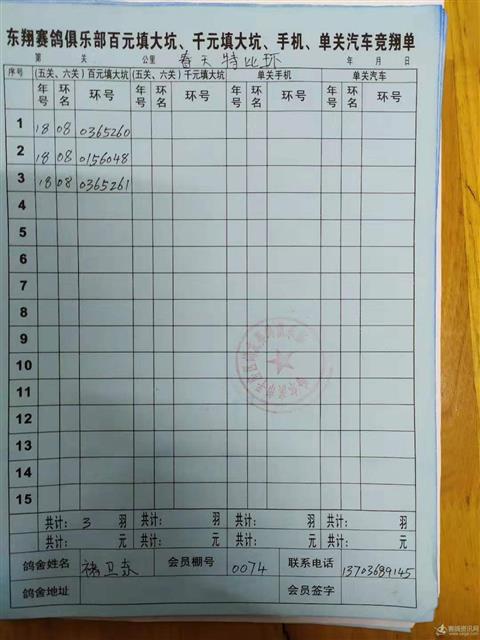 东翔赛鸽俱乐部百元填大坑、千元填大坑、手机、单关汽车竞翔单
第 关 公里 春天特比环 年 月 日
序号 (五关、六关)百元填大坑 (五关、六关)千元填大坑 单关手机 单关汽车
年号 环名 环号 年号 环名 环号 年号 环名 环号 年号 环名 环号
1 18 08 0365260
2 18 08 0156048
3 18 08 0365261
4
5
6
7
8
9
10
11
12
13
14
15
共计: 3 羽 共计: 羽 共计: 羽 共计: 羽
共计: 元 共计: 元 共计: 元 共计: 元
鸽舍姓名 褚卫东 会员棚号 0074 联系电话 13703689145
鸽舍地址 会员签字
赛鸽资讯网